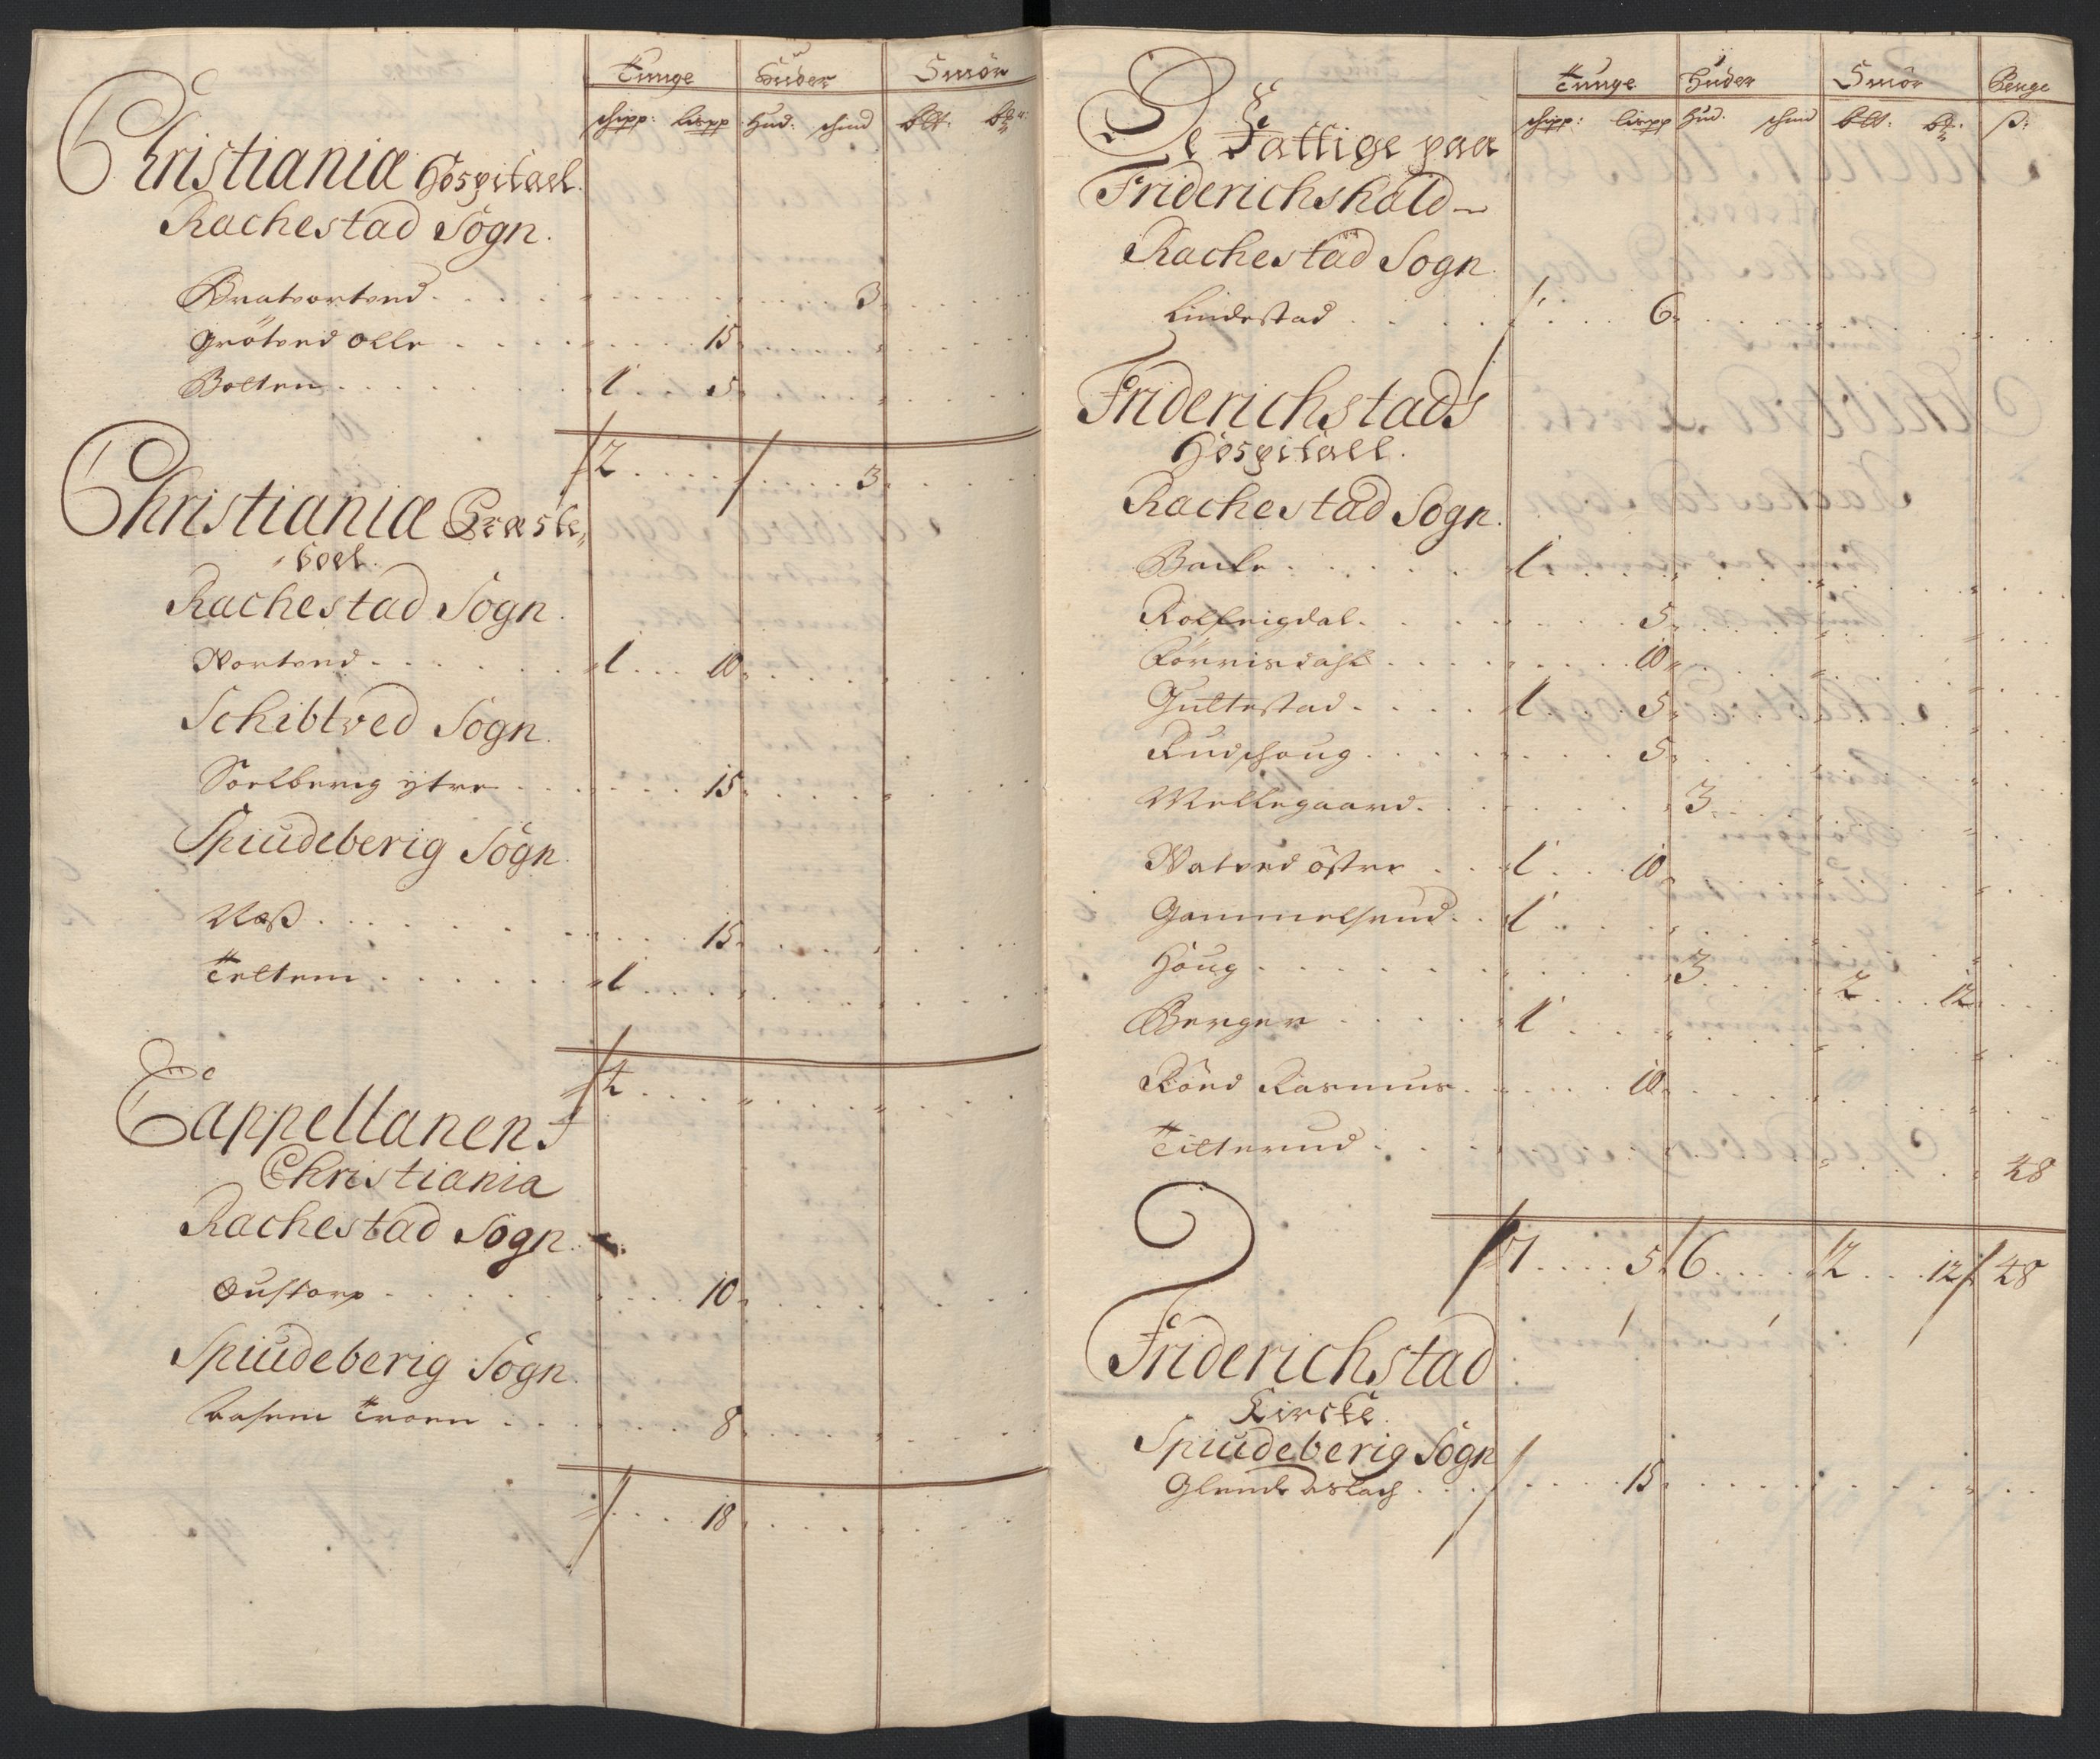 Tunge Huder Smör
schipp: lispp Hud: schind
Christianiæ Hospitael.
Rachestad Sogn.
Bratvortved 3
Grötved Olle 15
Bolten 1 5
2 3
Christianiæ Præste,,
boel.
Rachestad Sogn.
Nortved 1 10
Schibtved Sogn.
Soelberig ytre 15
Spiudeberig Sogn.
Næß 15
Teltem 1
4
Cappellanen I
Christiania
Rachestad Sogn.
Oustorp 10
Spiudeberig Sogn.
Troen 8
18
Tunge Huder Smör Penge
schipp: lispp Hud. schind ß:
De Fattige paa
Friderichshald
Rachestad Sogn
Lindestad 6
Friderichstads
Hospitall.
Rachestad Sogn.
Backe 1
Rolfeigdal 5
10
Gultestad 1 5
Rudshoug 5
Mellegaard 3
Natved östre 1 10
Gammelsrud 1
Houg 3 2 12
Berger 1
Röed Rasmus 10
Tilterud 48
7 5 6 2 12 48
Friderichstad
Kircke.
Spiudeberig Sogn
Glende Aslach 15